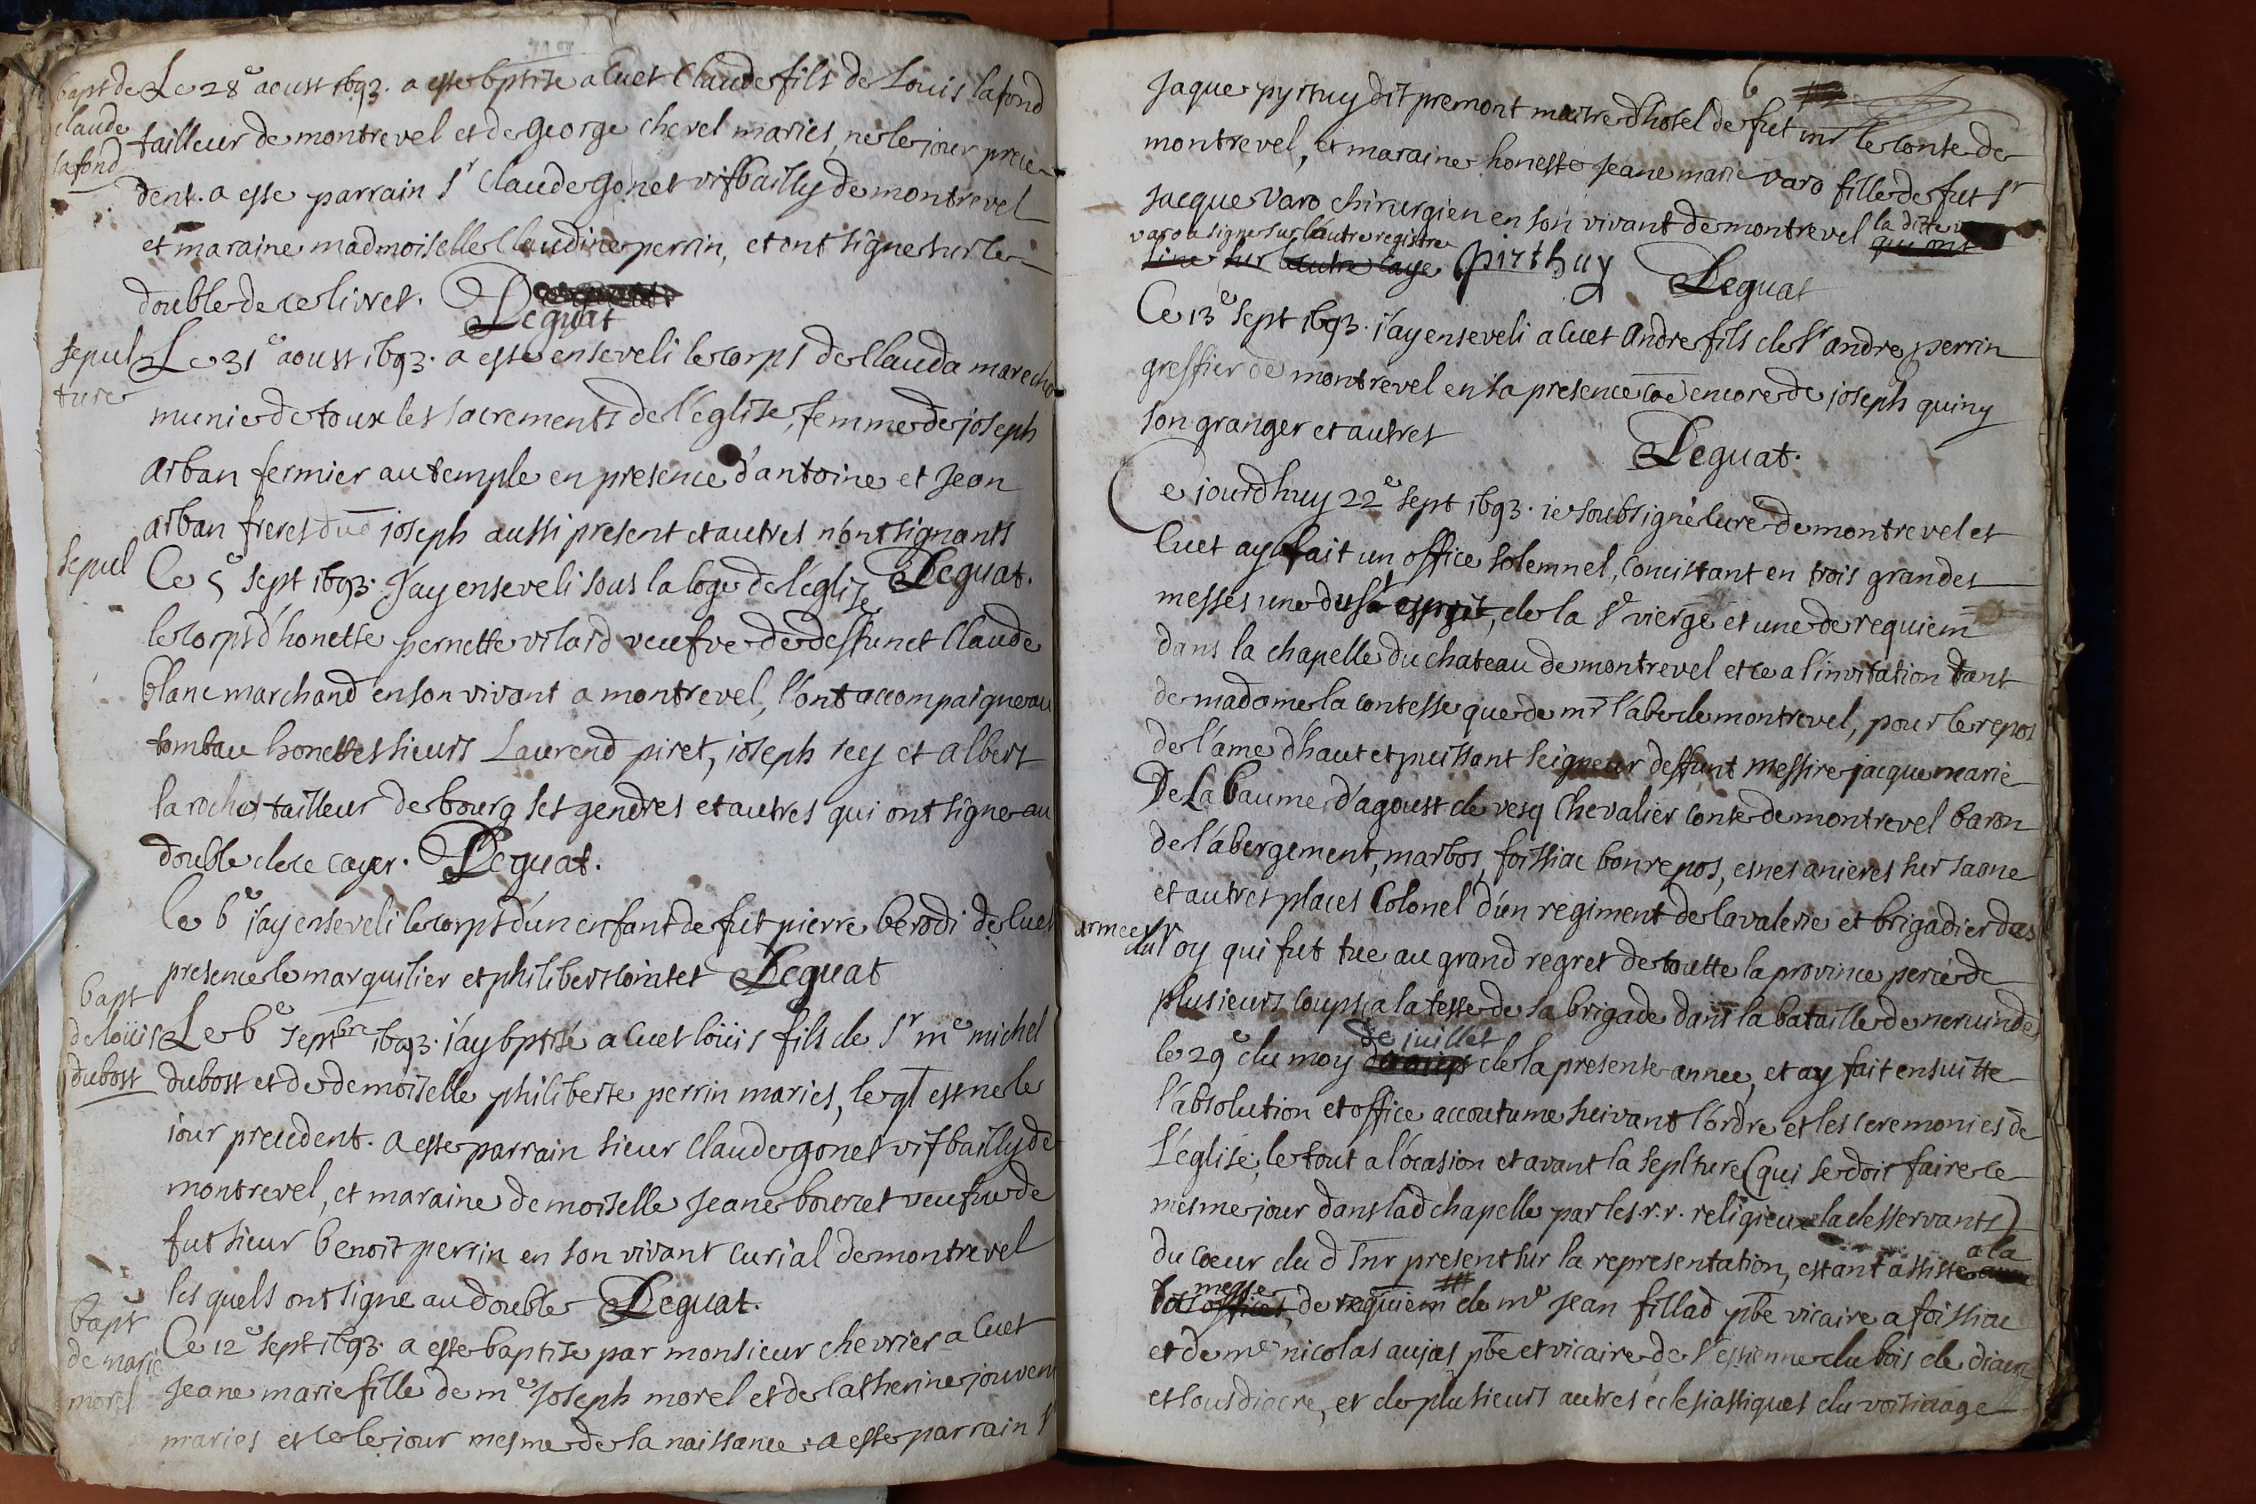 bapt de
claude
lafond
Le 28e aoust 1693. a esté bptise a Cuet Claude fils de Louis lafond
tailleur de montrevel et de George chevel maries, ne le jour prece
dent. a esse parrain Sr Claude Gonet vifbailly de montrevel
et maraine madmoiselle Claudine perrin, et ont signe sur le
double de ce livret. Deguat
sepul
ture
Le 31e aoust 1693. a este enseveli le corps de Clauda marecho
munie de toux les sacrements de l'église, femme de joseph
arban fermier au temple en presence d'antoine et Jean
arban freres dud joseph aussi present et autres n'ont signants
Deguat.
sepul
Ce 5e sept 1693. J'ay enseveli sous la loge de l'église
le corps d'honette pernette vilard veufve de deffunct Claude
blanc marchand en son vivant a montrevel, l'ont accompaigne au
tombau honettes sieurs Laurend piret, joseph rey et albert
laroche tailleur de bourg ses gendres et autres qui ont signe au
double de ce cayer. Deguat.
le 6e j'ay enseveli le corps d'un enfant de fut pierre berodi de Cuet
presence le marquilier et philibert cointet Deguat
bapt
de loüis
dubost
Le 6e septbre 1693. j'ay bptisé a Cuet loüis fils de Sr me michel
dubost et de demoiselle philiberte perrin maries, leql est ne le
jour precedent. a esse parrain sieur Claude gonet vifbailly de
montrevel, et maraine demoiselle Jeane bouret veufve de
fut sieur benoit perrin en son vivant curial de montrevel
lesquels ont signe au double Deguat.
bapt
de marie
morel
Ce 12e sept 1693. a este baptise par monsieur chevrier a Cuet
Jeane marie fille de me Joseph morel et de Catherine jouvent
maries et ce le jour mesme de la naissance. a esse parrain Sr
6
Jaque pyrthuy dit premont maitre d'hotel de fut mr le conte de
montrevel, et maraine honeste Jeane marie varo fille de fut Sr
Jacque Varo chirurgien en son vivant de montrevel la ditte
qui ont
varo a signe sur l'autre registre
sine sur l'autre caye Pirthuy Deguat
Ce 13e sept 1693. j'ay enseveli a Cuet andre fils de Sr andre perrin
greffier de montrevel en sa presence encore de joseph quiny
son granger et autres
Deguat.
Ce jourdhuy 22e sept 1693. je soubsigné Curé de montrevel et
Cuet ay fait un office solemnel, concistant en trois grandes
messes une du St esprit, de la Se vierge et une de requiem
dans la chapelle du chateau de montrevel et ce a l'invitation tant
de madame la contesse que de mr l'abe de montrevel, pour le repos
de l'ame d'haut et puissant seigneur deffunt Messire jacque marie
De La baume d'agoust de vesq Chevalier conte de montrevel baron
de l'abergement, marbos, foissiac bonrepos, esnes anieres sur saone
et autres places Colonel d'un regiment de Cavalerie et brigadier des
armees
du Roy qui fut tue au grand regret de toutte la province percé de
plusieurs coups a la teste de sa brigade dans la bataille de neruinde
de juillet
le 29e du moy de la presente annee, et ay fait ensuitte
l'absolution et office accoutume suivant l'ordre et les ceremonies de
l'église, le tout a l'ocasion et avant la seplture (qui se doit faire ce
mesme jour dans lad chapelle par les r.r. religieux la desservants)
du coeur du d Snr present sur la representation, estant assisté a la
messe
de requiem de me Jean fillad pbe vicaire a foissiac
et de me nicolas aujas pbe et vicaire de St estienne du bois de diacre
et sousdiacre, et de plusieurs autres eclesiastiques du voisinage